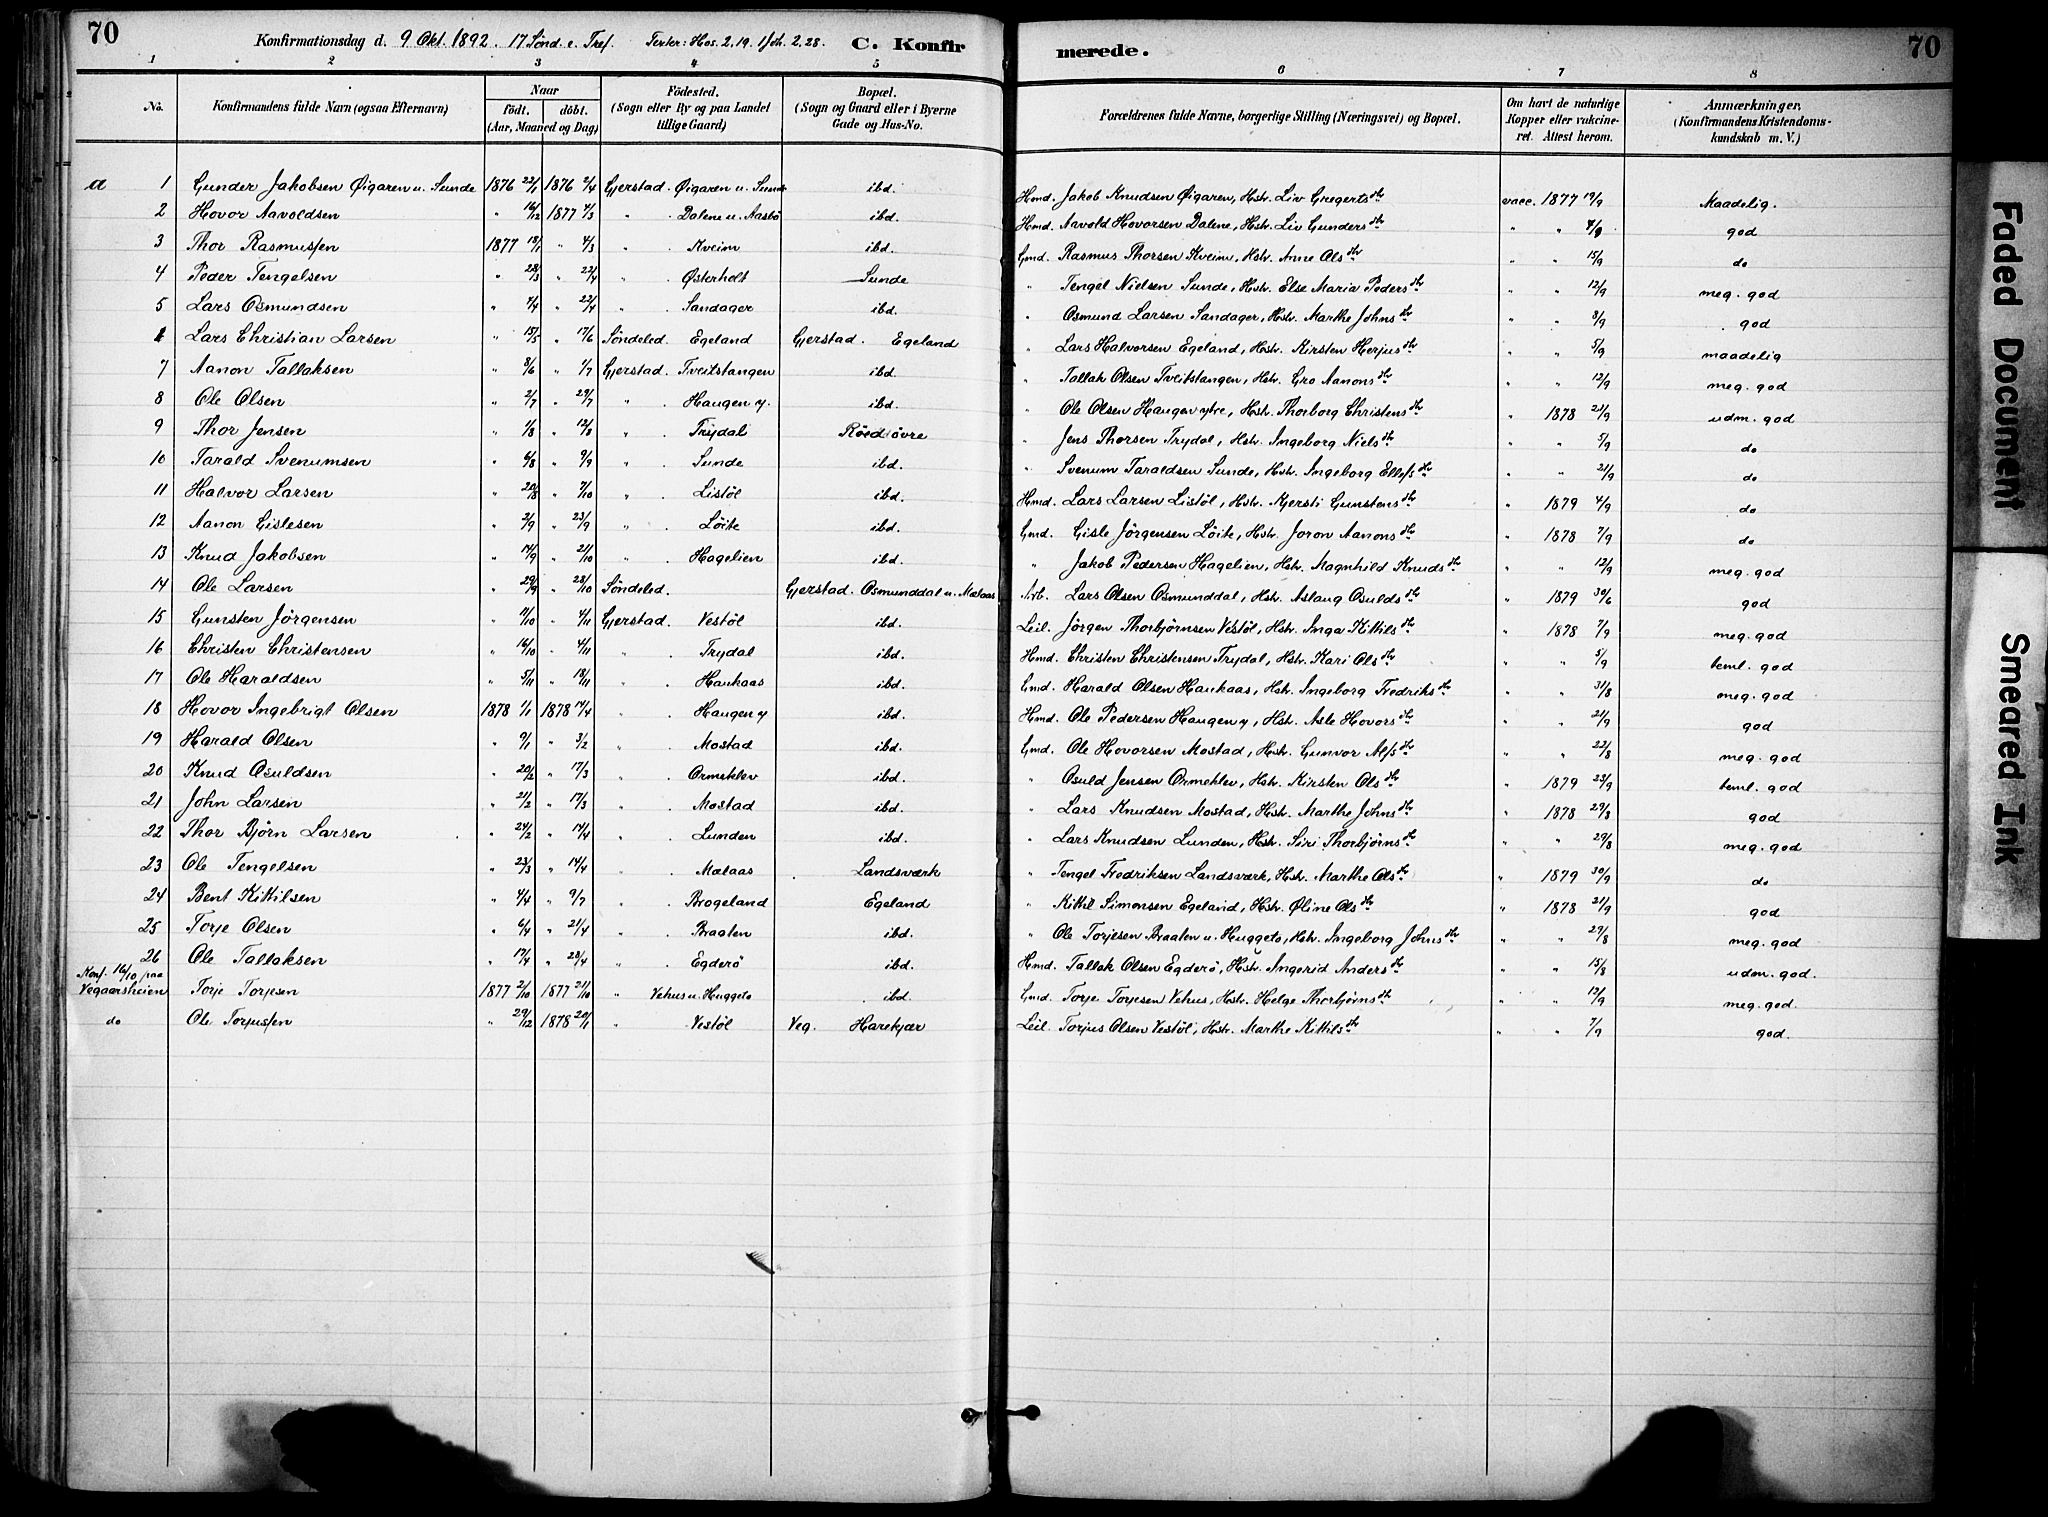 70
Konfirmationsdag d. 9 Okt. 1892. 17 Sönd. e. Tref. Texter: Hos. 2,19. 1 Joh. 2.28. C. Konfir merede. 70
1 2 3 4 5 6 7 8
No. Konfirmandens fulde Navn (ogsaa Efternavn) Naar födt. döbt. (Aar, Maaned og Dag) Födested. (Sogn eller By og paa Landet tillige Gaard) Bopæl. (Sogn og Gaard eller i Byerne Gade og Hus-No. Forældrenes fulde Navne, borgerlige Stilling (Næringsvei) og Bopæl. Om havt de naturlige Kopper eller vakcineret. Attest herom. Anmærkninger, (Konfirmandens Kristendomskundskab m. V.)
a 1 Gunder Jakobsen Øigaren u. Sunde 1876 22/1 1876 2/4 Gjerstad. Øigaren u. Sunde ibd. Hmd. Jakob Knudsen Øigaren, Hstr. Liv Gregertsdtr vacc. 1877 19/9 Maadelig.
2 Hovor Aavoldsen " 16/12 1877 4/3 " . Dalene u. Aasbö ibd. Hmd. Aavold Hovorsen Dalene, Hstr. Liv Gundersdtr " " 4/9 god
3 Thor Rasmussen 1877 18/1 " 4/3 " . Kveim ibd. Gmd. Rasmus Thorsen Kveim, Hstr. Anne Olsdtr " " 15/9 do
4 Peder Tengelsen " 28/3 " 22/4 " . Østerholt Sunde " Tengel Nielsen Sunde, Hstr. Else Maria Pedersdtr " " 12/9 meg. god
5 Lars Osmundsen " 7/4 " 22/4 " . Sandager ibd. " Osmund Larsen Sandager, Hstr. Marthe Johnsdtr " " 8/9 god
Lars Christian Larsen " 15/5 " 17/6 Söndeled Egeland Gjerstad. Egeland " Lars Halvorsen Egeland, Hstr. Kirsten Herjusdtr " " 5/9 maadelig
7 Aanon Tallaksen " 8/6 " 1/7 Gjerstad. Tveitstangen ibd. " Tallak Olsen Tveitstangen, Hstr. Gro Aanonsdtr " " 12/9 meg. god
8 Ole Olsen " 2/7 " 29/7 " . Haugen y. ibd. " Ole Olsen Haugen ytre, Hstr. Thorborg Christensdtr " 1878 21/9 udm. god
9 Thor Jensen " 1/8 " 12/8 " . Trydal Röed övre " Jens Thorsen Trydal, Hstr. Ingeborg Nielsdtr " " 5/9 do
10 Tarald Svenumsen " 6/8 " 9/9 " . Sunde ibd. " Svenum Taraldsen Sunde, Hstr. Ingeborg Ellefsdtr " " 21/9 do
11 Halvor Larsen " 20/8 " 7/10 " . Listöl ibd. Hmd. Lars Larsen Listöl, Hstr. Kjersti Gunstensdtr " 1879 4/9 do
12 Aanon Gislesen " 2/9 " 23/9 " . Löite ibd. Gmd. Gisle Jörgensen Löite, Hstr. Joron Aanonsdtr " 1878 7/9 do
13 Knud Jakobsen " 14/9 " 21/10 " . Hagelien ibd. " Jakob Pedersen Hagelien, Hstr. Magnhild Knudsdtr " " 12/9 meg. god
14 Ole Larsen " 29/9 " 28/10 Söndeled. Gjerstad. Osmunddal u. Mælaas Arb. Lars Olsen Osmunddal, Hstr. Aslaug Osuldsdtr " 1879 30/6 god
15 Gunsten Jörgensen " 11/10 " 4/11 Gjerstad. Vestöl ibd. Leil. Jörgen Thorbjörnsen Vestöl, Hstr. Inga Kittilsdtr " 1878 7/9 meg. god
16 Christen Christensen " 16/10 " 4/11 " . Trydal ibd. Hmd. Christen Christensen Trydal, Hstr. Kari Olsdtr " " 5/9 beml. god
17 Ole Haraldsen " 5/11 " 18/11 " . Haukaas ibd. Gmd. Harald Olsen Haukaas, Hstr. Ingeborg Fredriksdtr " " 31/8 meg. god
18 Hovor Ingebrigt Olsen 1878 1/1 1878 14/4 " . Haugen y ibd. Hmd. Ole Pedersen Haugen y, Hstr. Asle Hovorsdtr " " 21/9 god
19 Harald Olsen " 9/1 " 3/2 " . Mostad ibd. Gmd. Ole Hovorsen Mostad, Hstr. Gunvor Alfsdtr " " 22/8 meg. god
20 Knud Osuldsen " 20/2 " 17/3 " . Ormeklev ibd. " Osuld Jensen Ormeklev, Hstr. Kirsten Olsdtr " 1879 23/9 beml. god
21 John Larsen " 21/2 " 17/3 " . Mostad ibd. " Lars Knudsen Mostad, Hstr. Marthe Johnsdtr " 1878 29/8 god
22 Thor Björn Larsen " 24/2 " 14/4 " . Lunden ibd. " Lars Knudsen Lunden, Hstr. Siri Thorbjørnsdtr " " 29/8 meg. god
23 Ole Tengelsen " 23/3 " 14/4 " . Mælaas Landsværk " Tengel Fredriksen Landsværk, Hstr. Marthe Olsdtr " 1879 30/9 do
24 Bent Kittilsen " 4/4 " 9/7 " . Brogeland Egeland " Kittil Simonsen Egeland, Hstr. Øline Olsdtr " 1878 21/9 god
25 Torje Olsen " 6/4 " 21/4 " . Braaten ibd. " Ole Torjesen Braaten u. Huggeto, Hstr. Ingeborg Johnsdtr " " 29/8 meg. god
26 Ole Tallaksen " 17/4 " 28/4 " . Egderö ibd. Hmd. Tallak Olsen Egderö, Hstr. Ingerid Andersdtr " " 15/8 udm. god.
Konf. 16/10 paa
Vegaarsheien Torje Torjesen 1877 2/10 1877 21/10 " Vehus u. Huggeto ibd. Gmd. Torje Torjesen Vehus, Hstr. Helge Thorbjörnsdtr " " 12/9 meg. god.
do Ole Torjussen " 29/12 1878 20/1 " Vestöl Veg. Harekjær Leil. Torjus Olsen Vestöl, Hstr. Marthe Kittilsdtr " " 7/9 god.
Faded Document
Smeared Ink